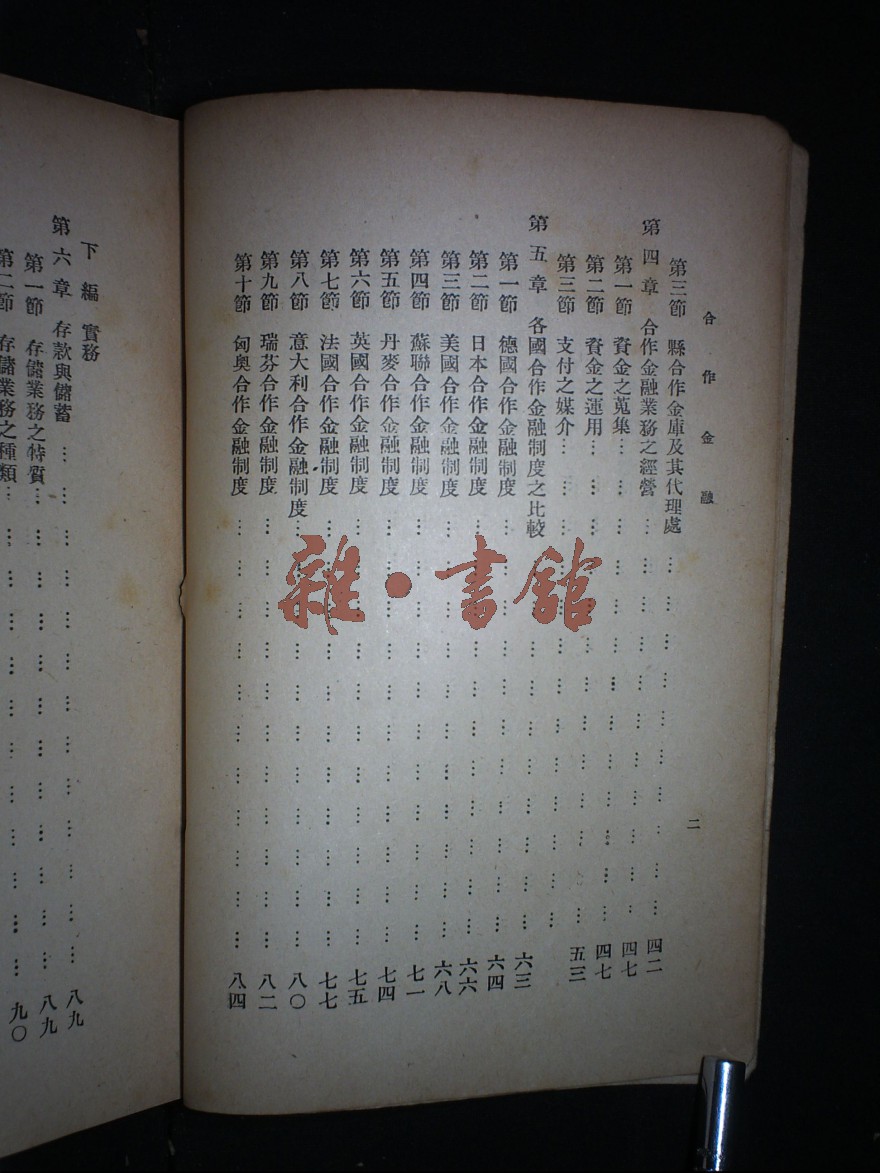 合作金融
二
第三節 縣合作金庫及其代理處………………………四二
第四章 合作金融業務之經營………………………四七
第一節 資金之蒐集………………………四七
第二節 資金之運用………………………五三
第三節 支付之媒介………………………
第五章 各國合作金融制度之比較………………………六三
第一節 德國合作金融制度………………………六四
第二節 日本合作金融制度………………………六六
第三節 美國合作金融制度………………………六八
第四節 蘇聯合作金融制度………………………七一
第五節 丹麥合作金融制度………………………七四
第六節 英國合作金融制度………………………七五
第七節 法國合作金融制度………………………七七
第八節 意大利合作金融制度………………………八〇
第九節 瑞芬合作金融制度………………………八二
第十節 匈奧合作金融制度………………………八四
下編 實務
第六章 存款與儲蓄………………………八九
第一節 存儲業務之特質………………………八九
第二節 存儲業務之種類………………………九〇
雜·書館